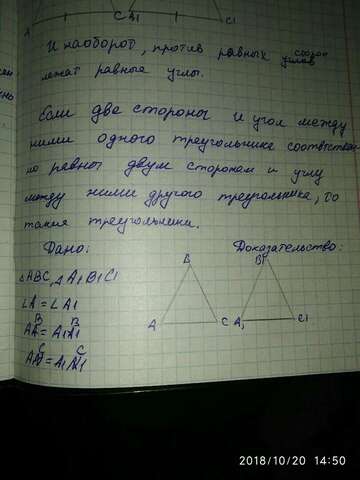 A C A1 C1
И наоборот, против равных сторон
углов
лежат равные углы.
Если две стороны и угол между
ними одного треугольника соответствен-
но равны двум сторонам и углу
между ними другого треугольника, то
такие треугольники.
Дано: Доказательство:
△ABC, △A1B1C1
∠A = ∠A1
AB = A1B1
AC = A1C1
B B1
A C A1 C1
2018/10/20 14:50